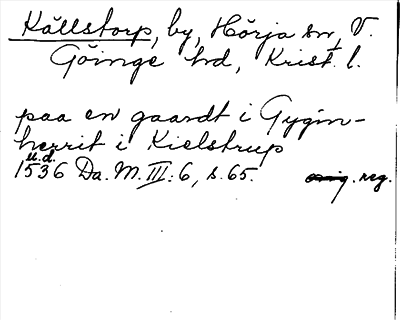 Källstorp, by, Hörja sn, V.
Göinge hd, Krist. l.
paa en gaardt i Gygin-
herrit i Kielstrup
u.d.
1536 Da. M. III: 6, s. 65. orig. reg.